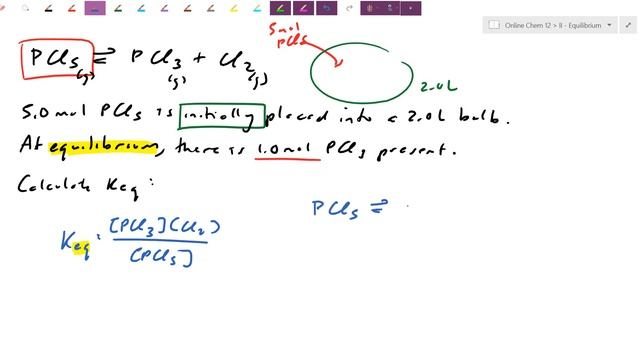 Online Chem 12 > II - Equilibrium
PCl₅(g) ⇌ PCl₃(g) + Cl₂(g)
5 mol
PCl₅
2.0L
5.0 mol PCl₅ is initially placed into a 2.0L bulb.
At equilibrium, there is 1.0 mol present.
Calculate Keq:
Keq = [PCl₃][Cl₂]
[PCl₅]
PCl₅ ⇌